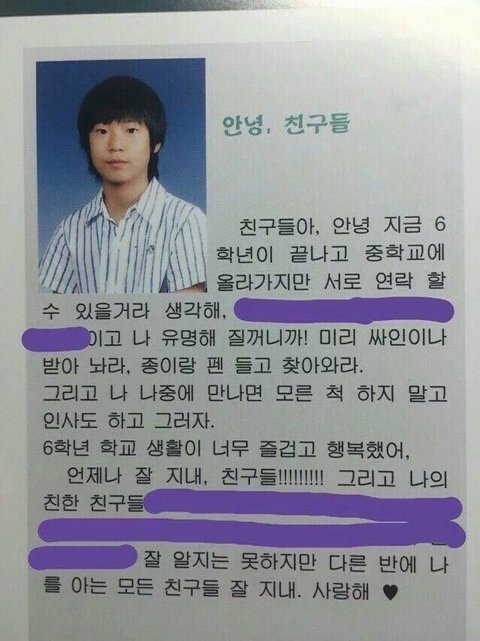 안녕, 친구들
친구들아, 안녕 지금 6
학년이 끝나고 중학교에
올라가지만 서로 연락 할
수 있을거라 생각해,
이고 나 유명해 질꺼니까! 미리 싸인이나
받아 놔라, 종이랑 펜 들고 찾아와라.
그리고 나 나중에 만나면 모른 척 하지 말고
인사도 하고 그러자.
6학년 학교 생활이 너무 즐겁고 행복했어,
언제나 잘 지내, 친구들!!!!!!!!! 그리고 나의
친한 친구들
잘 알지는 못하지만 다른 반에 나
를 아는 모든 친구들 잘 지내. 사랑해 ♥